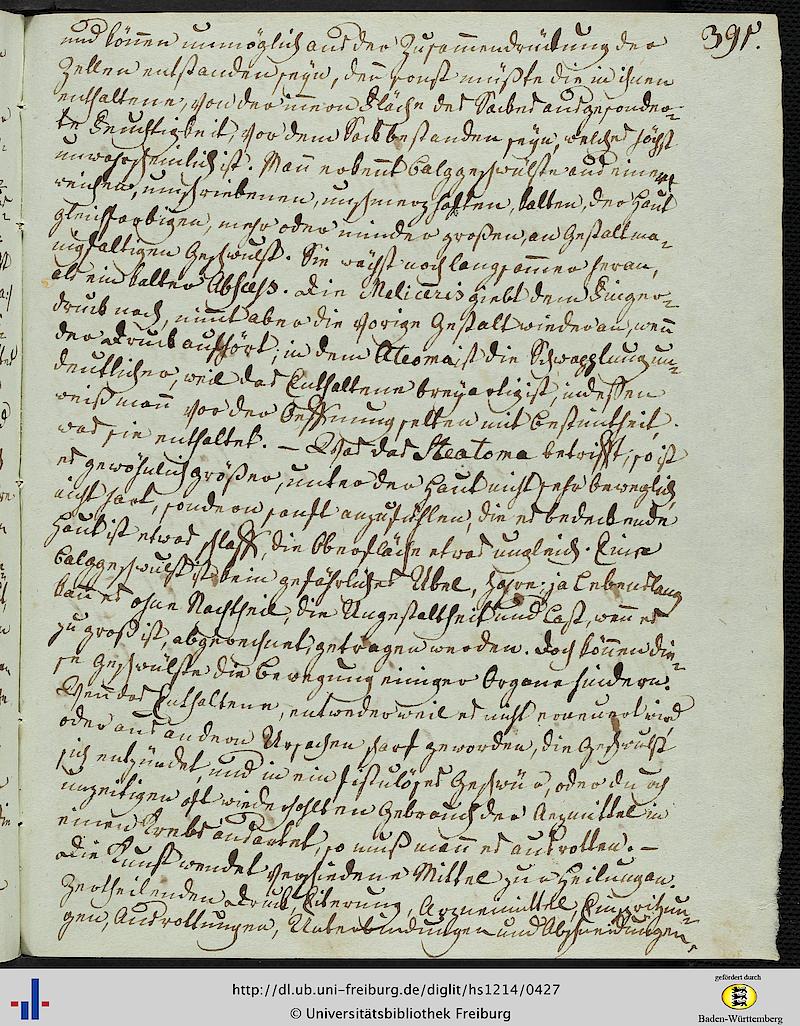 391.
und können unmöglich aus der Zusammendrückung der
Zellen entstanden seyn, den̄ sonst müßte die in ihnen
enthaltene, von der innern Fläche des Sackes ausgesonder-
te Feuchtigkeit, vor dem Sack bestanden seyn, welches höchst
unwahrscheinlich ist. Man̄ erkent Balggeschwülste aus einer
weichen, umschriebenen, unschmerzhaften, kalten, der Haut
gleichfarbigen, mehr oder minder großen, an Gestalt ma-
nigfaltigen Geschwulst. Sie wächst noch langsammer heran,
als ein kalter Absceß. Die Meliceris giebt dem Finger-
druck nach, nim̄t aber die vorige Gestalt wieder an, wen̄
der Druck aufhört, in dem Ateoma ist die Schwapplung un-
deutlicher, weil das Enthaltene breyartig ist, indessen
weiß man̄ vor der Oeffnung selten mit Bestim̄theit,
was sie enthaltet. – Was das Steatoma betrifft, so ist
es gewöhnlich größer, unter der Haut nicht sehr beweglich,
nicht hart, sondern sanft anzufühlen, die es bedeckende
Haut ist etwas schlaff, die Oberfläche etwas ungleich. Eine
Balggeschwulst ist kein gefährliches Übel, Jahre: ja Lebenslang
kan̄ es ohne Nachtheil, die Ungestaltheit und Last, wen̄ es
zu groß ist, abgerechnet, getragen werden. Doch können die-
se Geschwülste die Bewegung einiger Organe hindern.
Wen̄ das Enthaltene, entweder weil es nicht erneuert wird,
oder aus andern Ursachen scharf geworden, die Geschwulst
sich entzündet, und in ein fistulöses Geschwür, oder durch
unzeitigen oft wiederhohlten Gebrauch der Aezmittel in
einen Krebs ausartet, so muß man̄ es ausrotten. –
Die Kunst wendet verschiedene Mittel zur Heilung an.
Zertheilenden Druck, Eiterung, Arzneimittel, Einspritzun-
gen, Ausrottungen, Unterbindungen und Abschneidungen,
http://dl.ub.uni-freiburg.de/diglit/hs1214/0427
© Universitätsbibliothek Freiburg
gefördert durch
Baden-Württemberg